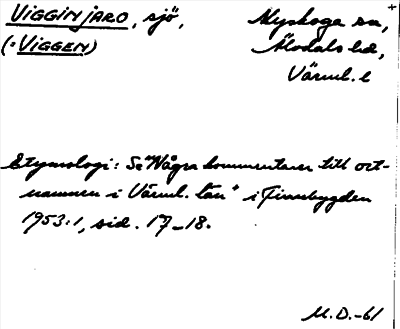 VIGGINJARO, sjö, Nyskoga sn,
(=VIGGEN) Älvdals hd,
Värml. l
Etymologi: Se "Några kommentarer till ort-
namnen i Värml. län" i Finnbygden
1953:1, sid. 17-18.
M.D.-61